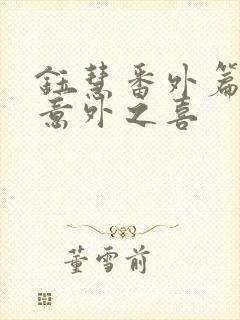 鈺慧番外篇
意外之喜
董雪前